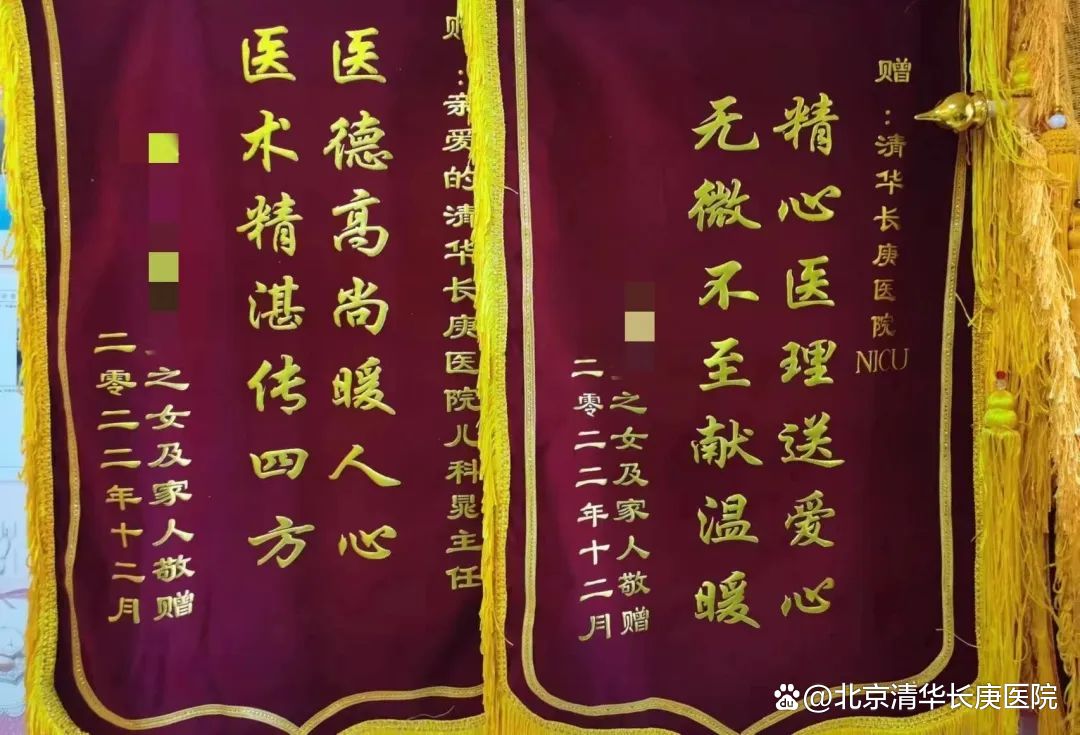 赠：亲爱的清华长庚医院儿科晁主任
医德高尚暖人心
医术精湛传四方
之女及家人敬赠
二零二二年十二月
赠：清华长庚医院
NICU
精心医理送爱心
无微不至献温暖
之女及家人敬赠
二零二二年十二月
@北京清华长庚医院